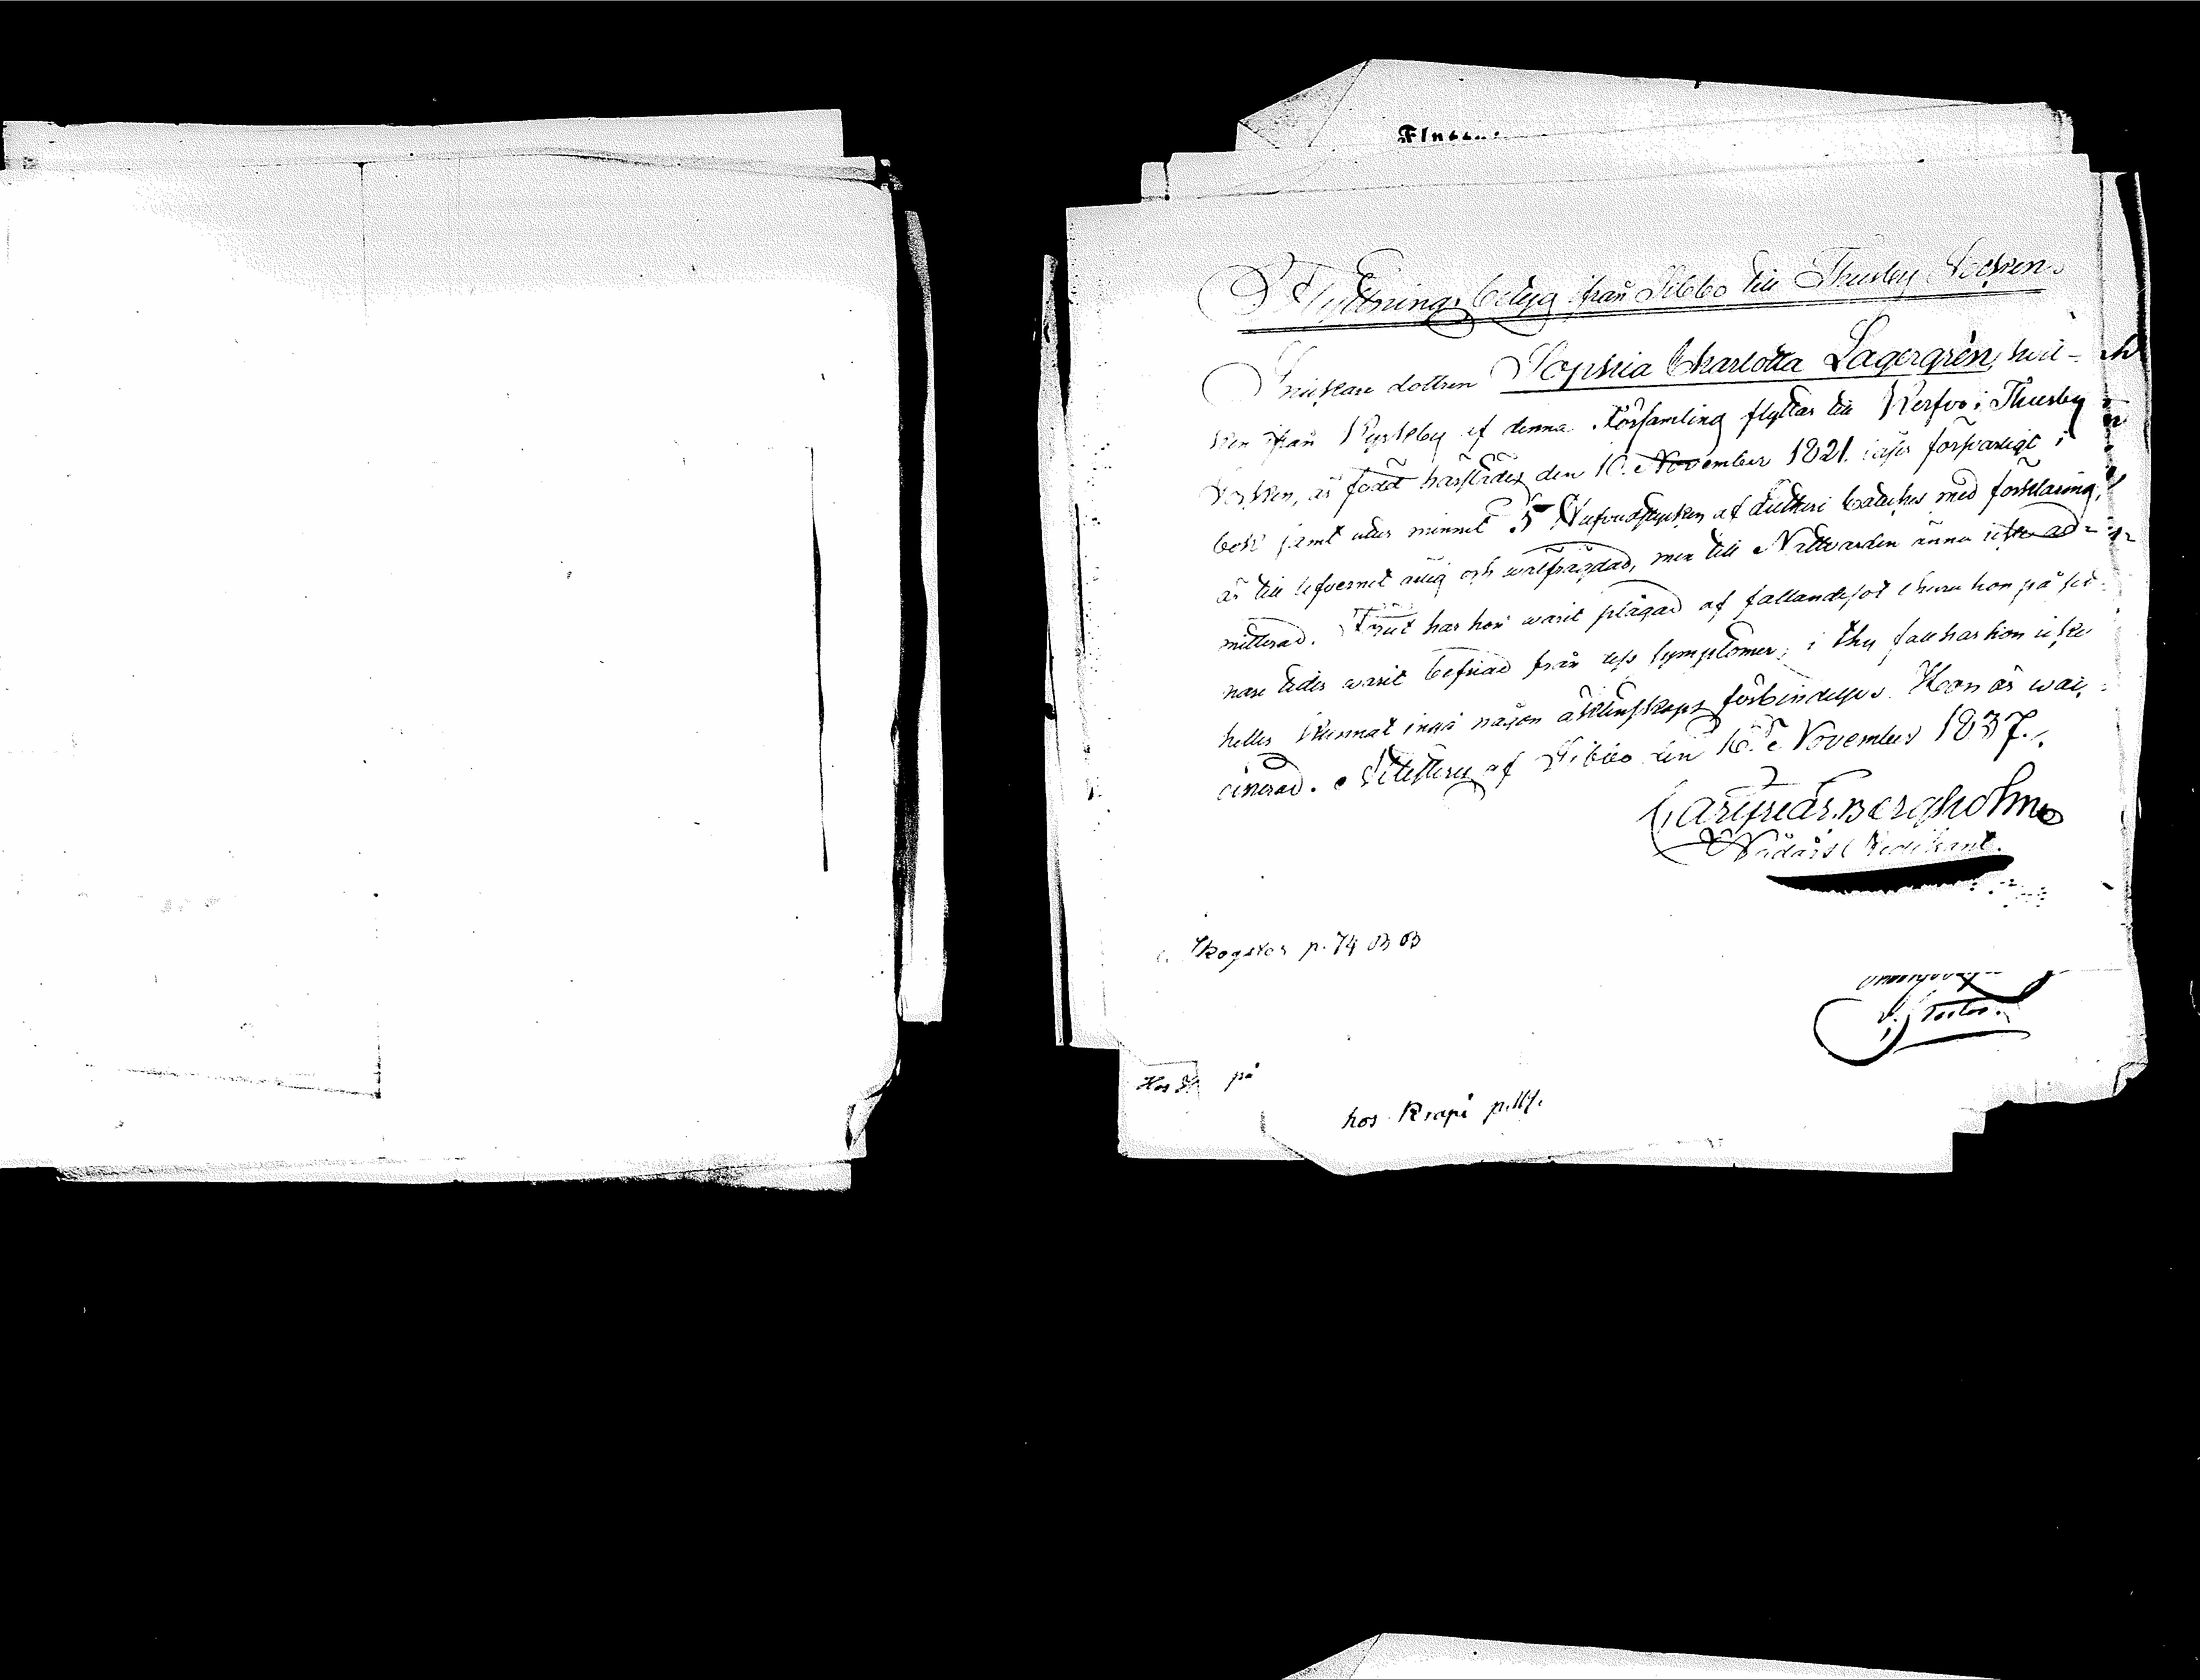 Flyttnings betyg från Sibbo till Thusby Socken.
Snickare dottren Sophia Charlotta Lagergrèn, hvil-
ken från Nyckby af denna Församling flyttar till Kerfvo i Thusby
Socken, är född härstädes den 10. November 1821. läser försvarligt i
bok jemt utur minnet 5 Hufvudstycken af Lutheri Cateches med förklaring,
är till lefvernet ärlig och wälfrägdad, men till Nattvarden ännu icke ad-
mitterad. Förut har hon warit plågad af fallandesot ehuru hon på sed-
nare tider warit befriad från dess symptomer, i thy fall har hon icke
heller kunnat ingå någon äktenskaps förbindelse. Hon är wac-
cinerad. Attesterar af Sibbo den 16. November 1837.
Carl Fredr. Bergholm
Nådårs Predikant.
Skogster p. 74
v. Pastor.
på
hos Krapi p. 117.